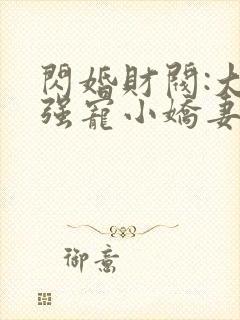 閃婚財閥:大
强寵小嬌妻
御意